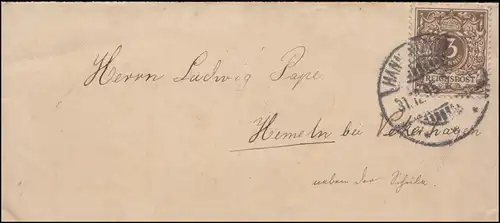 3
REICHSPOST
HANN
31.12.95
Herrn Ludwig Pape.
Hemeln bei Veckerhagen
neben der Schule.